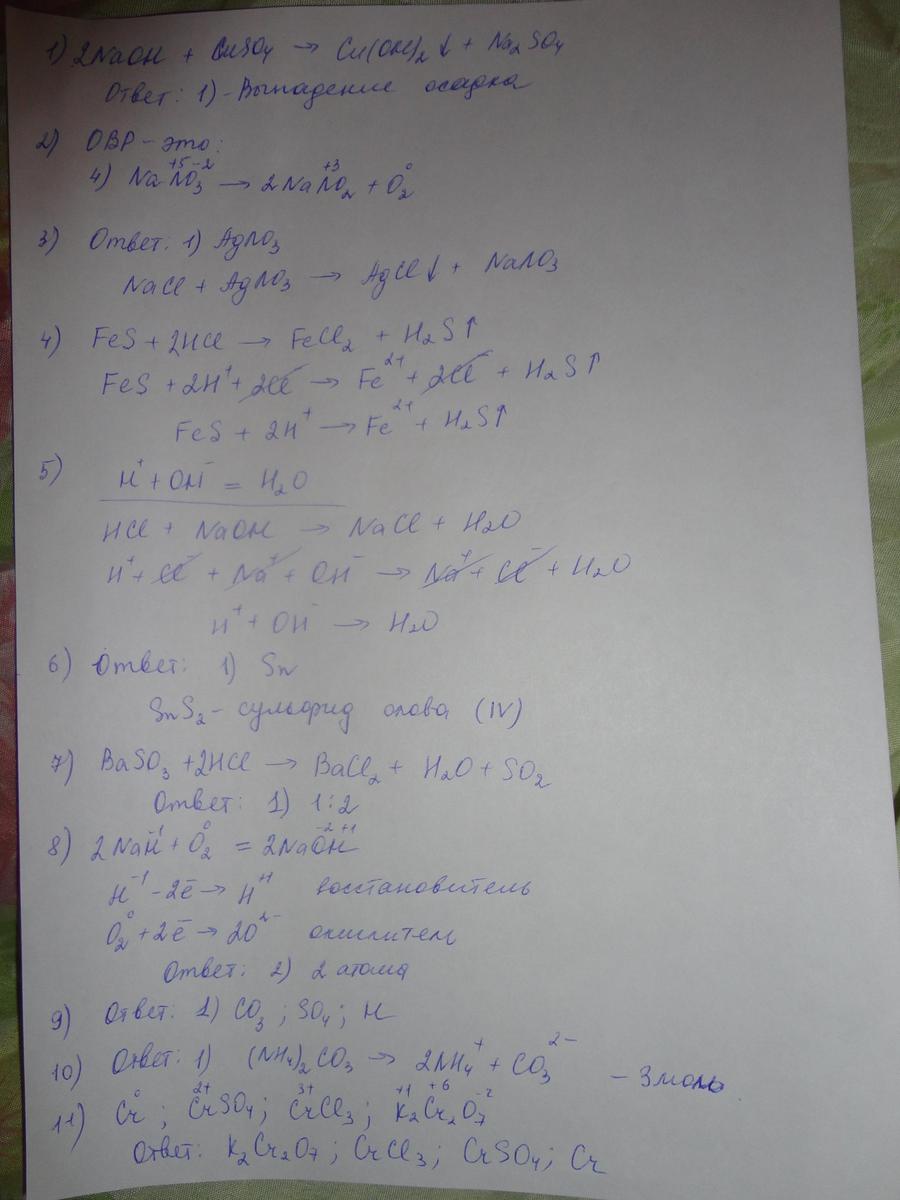 1) 2NaOH + CuSO₄ → Cu(OH)₂↓ + Na₂SO₄
Ответ: 1) - Выпадение осадка
2) ОВР - это:
4) NaN⁺⁵O₃⁻² → 2NaN⁺³O₂ + O₂⁰
3) Ответ: 1) AgNO₃
NaCl + AgNO₃ → AgCl↓ + NaNO₃
4) FeS + 2HCl → FeCl₂ + H₂S↑
FeS + 2H⁺ + 2Cl⁻ → Fe²⁺ + 2Cl⁻ + H₂S↑
FeS + 2H⁺ → Fe²⁺ + H₂S↑
5) H⁺ + OH⁻ = H₂O
HCl + NaOH → NaCl + H₂O
H⁺ + Cl⁻ + Na⁺ + OH⁻ → Na⁺ + Cl⁻ + H₂O
H⁺ + OH⁻ → H₂O
6) Ответ: 1) Sn
SnS₂ - сульфид олова (IV)
7) BaSO₃ + 2HCl → BaCl₂ + H₂O + SO₂
Ответ: 1) 1:2
8) 2NaH⁻¹ + O₂⁰ = 2NaO⁻²H⁺¹
H⁻¹ - 2e⁻ → H⁺¹ восстановитель
O₂⁰ + 2e⁻ → 2O²⁻ окислитель
Ответ: 2) 2 атома
9) Ответ: 1) CO₃ ; SO₄ ; H
10) Ответ: 1) (NH₄)₂CO₃ → 2NH₄⁺ + CO₃²⁻ - 3моль
11) Cr⁰ ; Cr²⁺SO₄ ; Cr³⁺Cl₃ ; K₂⁺¹Cr₂⁺⁶O₇⁻²
Ответ: K₂Cr₂O₇ ; CrCl₃ ; CrSO₄ ; Cr